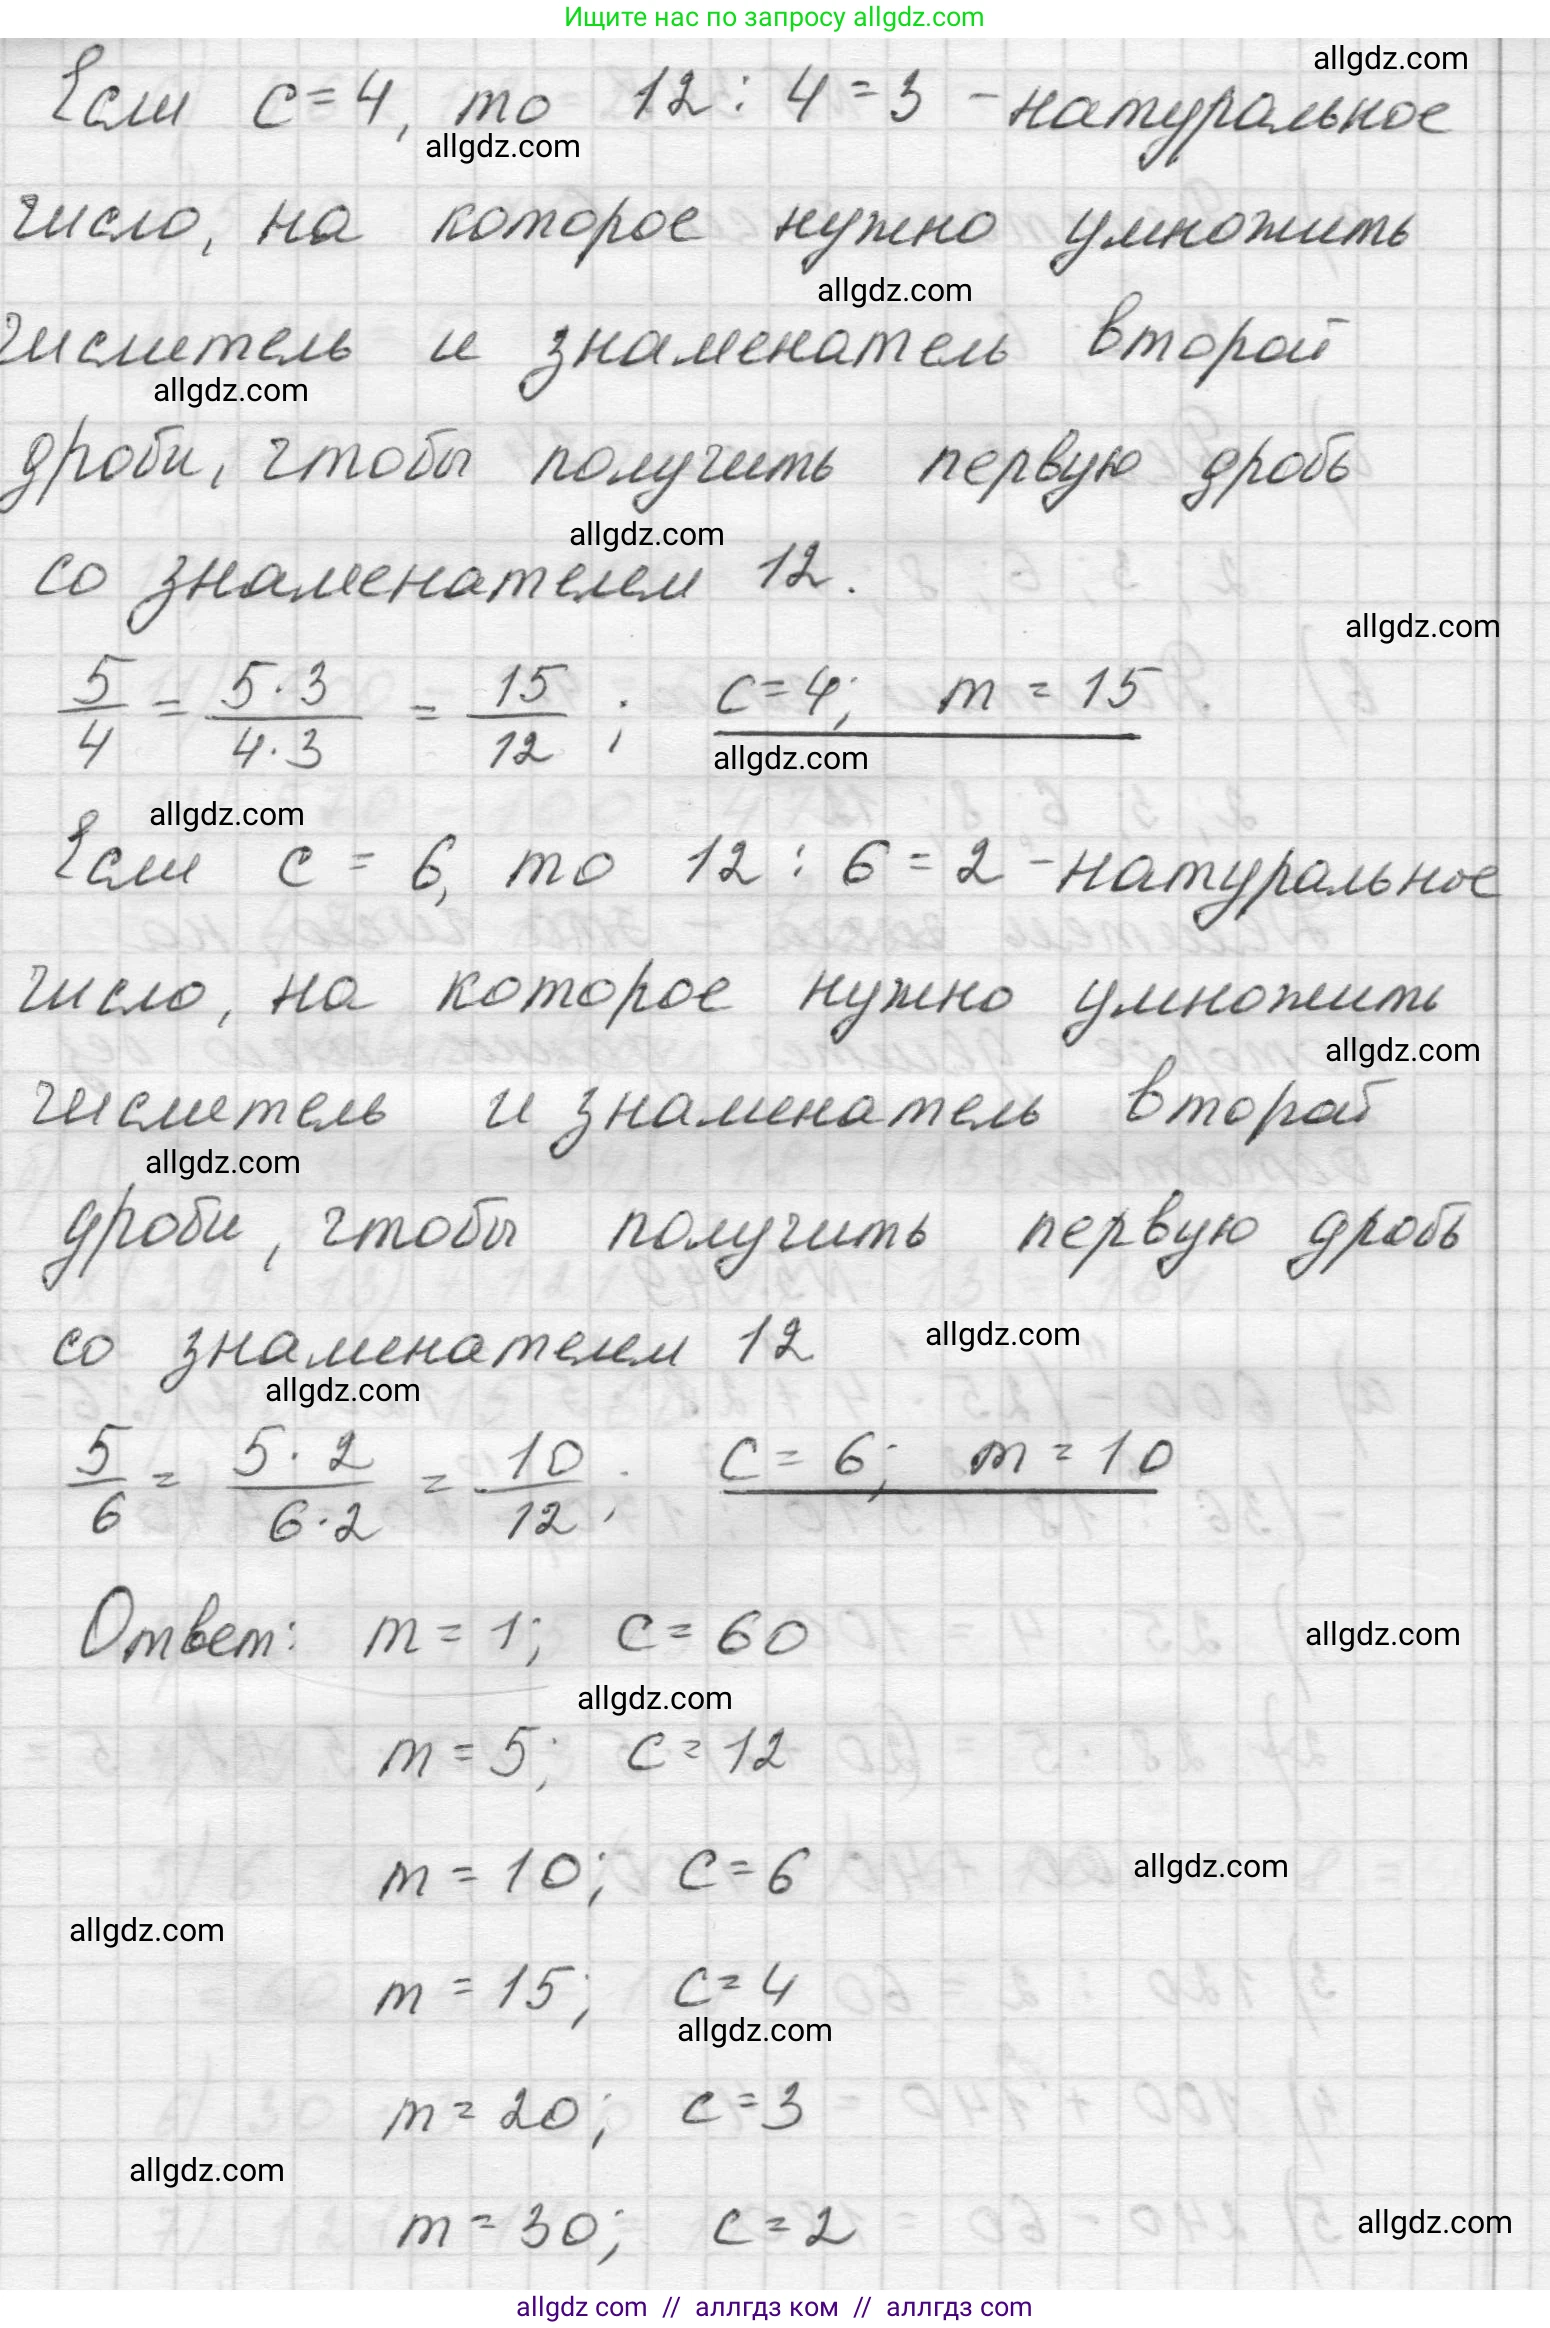 Ищите нас по запросу allgdz.com
allgdz.com
Если c=4, то 12 : 4 = 3 - натуральное
allgdz.com
число, на которое нужно умножить
allgdz.com
числитель и знаменатель второй
allgdz.com
дроби, чтобы получить первую дробь
allgdz.com
со знаменателем 12.
allgdz.com
5/4 = 5·3/4·3 = 15/12 ; c=4; m = 15
allgdz.com
allgdz.com
Если c = 6, то 12 : 6 = 2 - натуральное
число, на которое нужно умножить
allgdz.com
числитель и знаменатель второй
allgdz.com
дроби, чтобы получить первую дробь
со знаменателем 12
allgdz.com
allgdz.com
5/6 = 5·2/6·2 = 10/12 ; c = 6; m = 10
Ответ: m = 1; c = 60
allgdz.com
allgdz.com
m = 5; c = 12
m = 10; c = 6
allgdz.com
allgdz.com
m = 15; c = 4
allgdz.com
m = 20; c = 3
allgdz.com
m = 30; c = 2
allgdz.com
allgdz com // аллгдз ком // аллгдз com